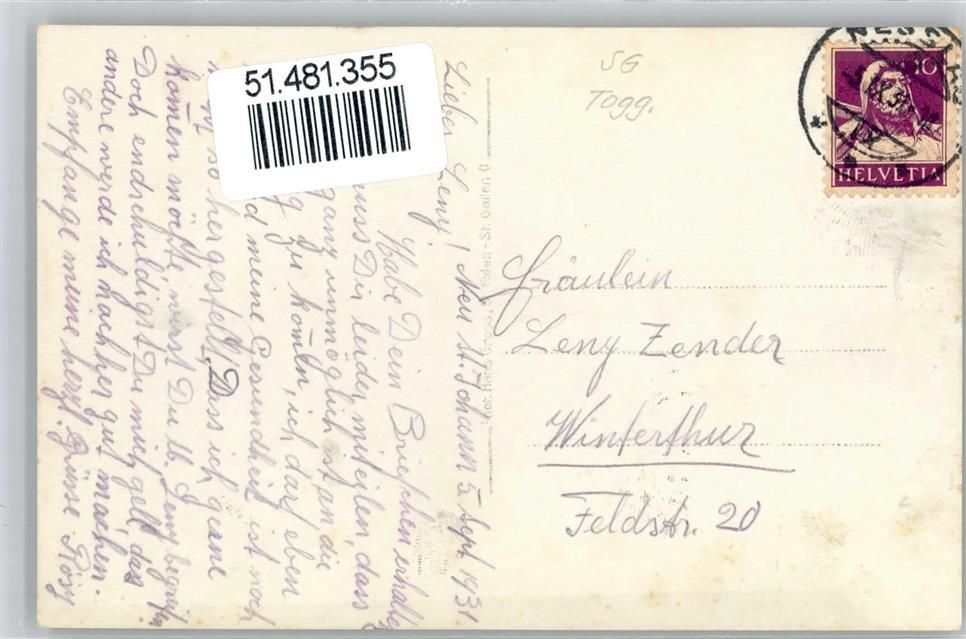 51.481.355
SG
Togg.
10
HELVETIA
Fräulein
Leny Zender
Winterthur
Feldstr. 20
St. Gallen O
Neu St. Johann 5. Sept 1931.
Liebe Leny!
Habe Dein Briefchen erhalten
muss Dir leider mitteilen, dass
ganz unmöglich ist an die
zu kom̄en, ich darf eben
und meine Gesundheit ist noch
so hergestellt. Dass ich gerne
kom̄en möchte, wirst Du lb. Leny begreifen
Doch endschuldigst Du mich gell, das
andere werde ich nachher gut machen.
Empfange meine herzl. Grüsse Rösy